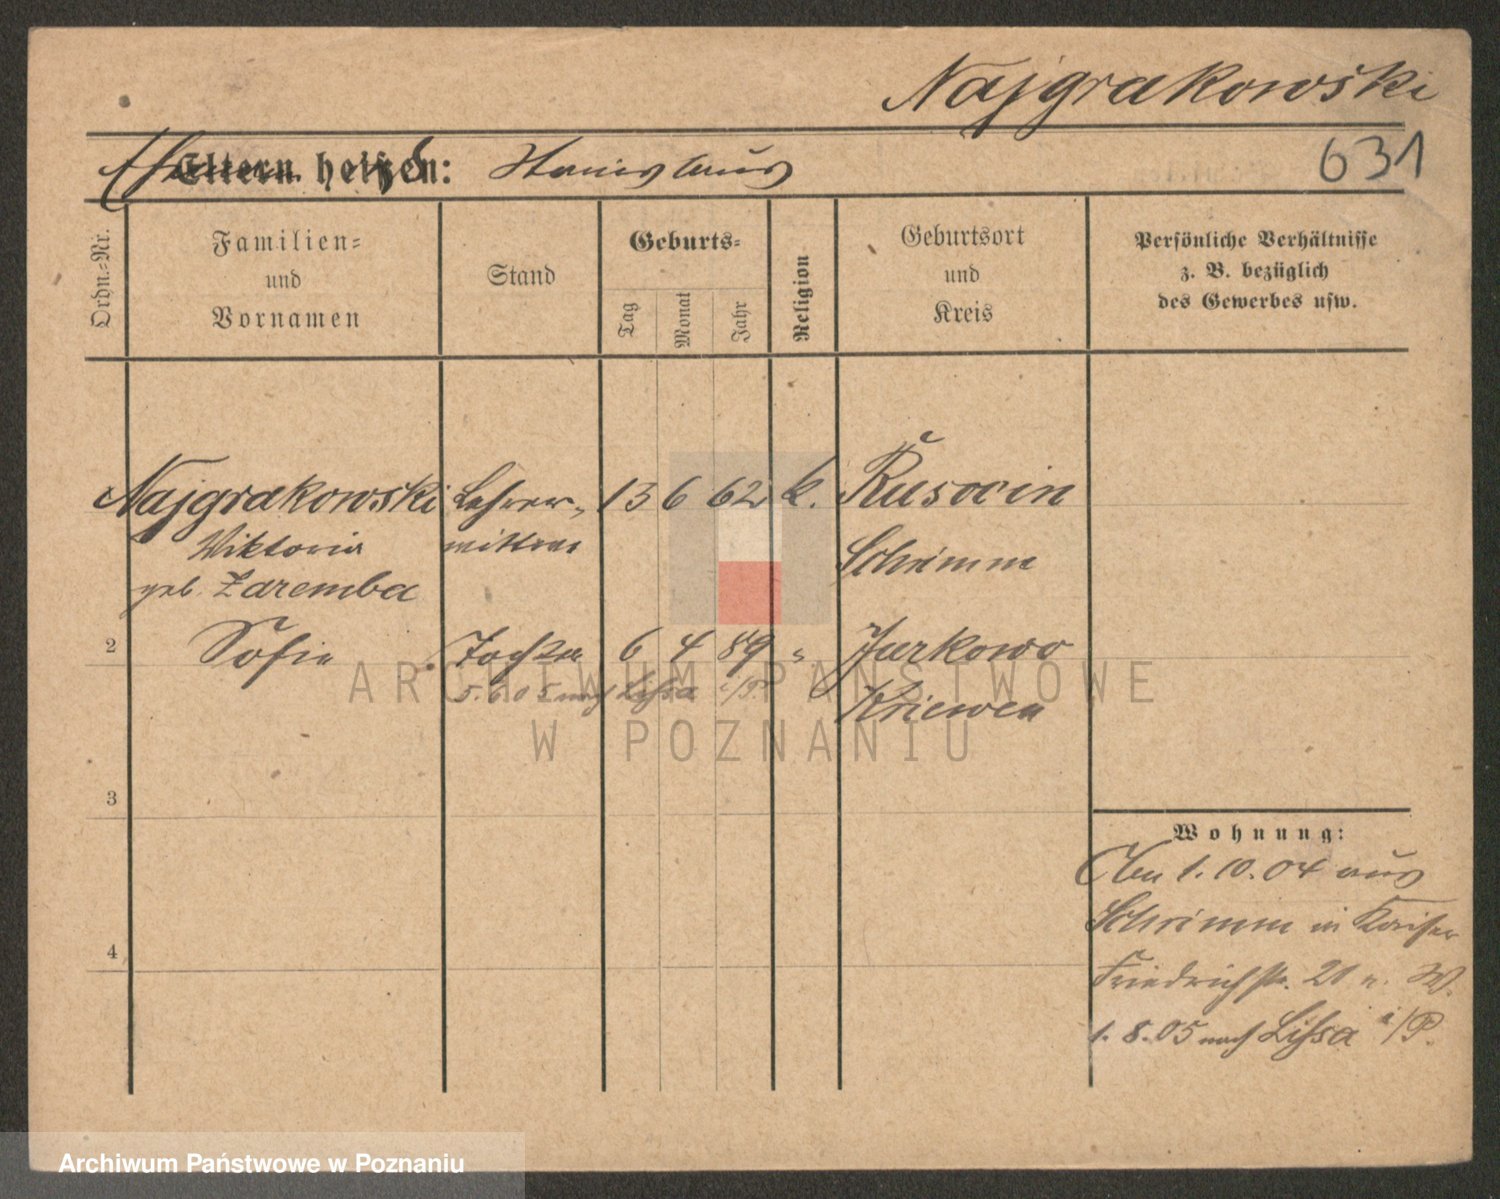 Najgrakowski
631
Eltern heißen: Stanislaus
Ordn.-Nr.
Familien-
und
Vornamen
Stand
Geburts-
Tag
Monat
Jahr
Religion
Geburtsort
und
Kreis
Persönliche Verhältnisse
z. B. bezüglich
des Gewerbes usw.
Najgrakowski Lehrer- 13 6 62 k. Rusocin
Wiktoria wittwe Schrimm
geb. Zaremba
2 Sofie Tochter 6 4 89 " Jurkowo
5.6.05 nach Lissa i/P. Kriewen
3
4
Wohnung:
Am 1.10.04 aus
Schrimm in Kaiser
Friedrichstr. 21 n. W.
1.8.05 nach Lissa i/P.
ARCHIWUM PAŃSTWOWE
W POZNANIU
Archiwum Państwowe w Poznaniu